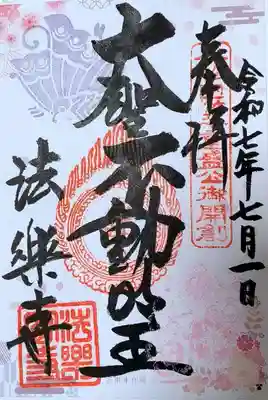 令和七年七月一日
奉拝
盛公御開創
大聖不動明王
法樂寺